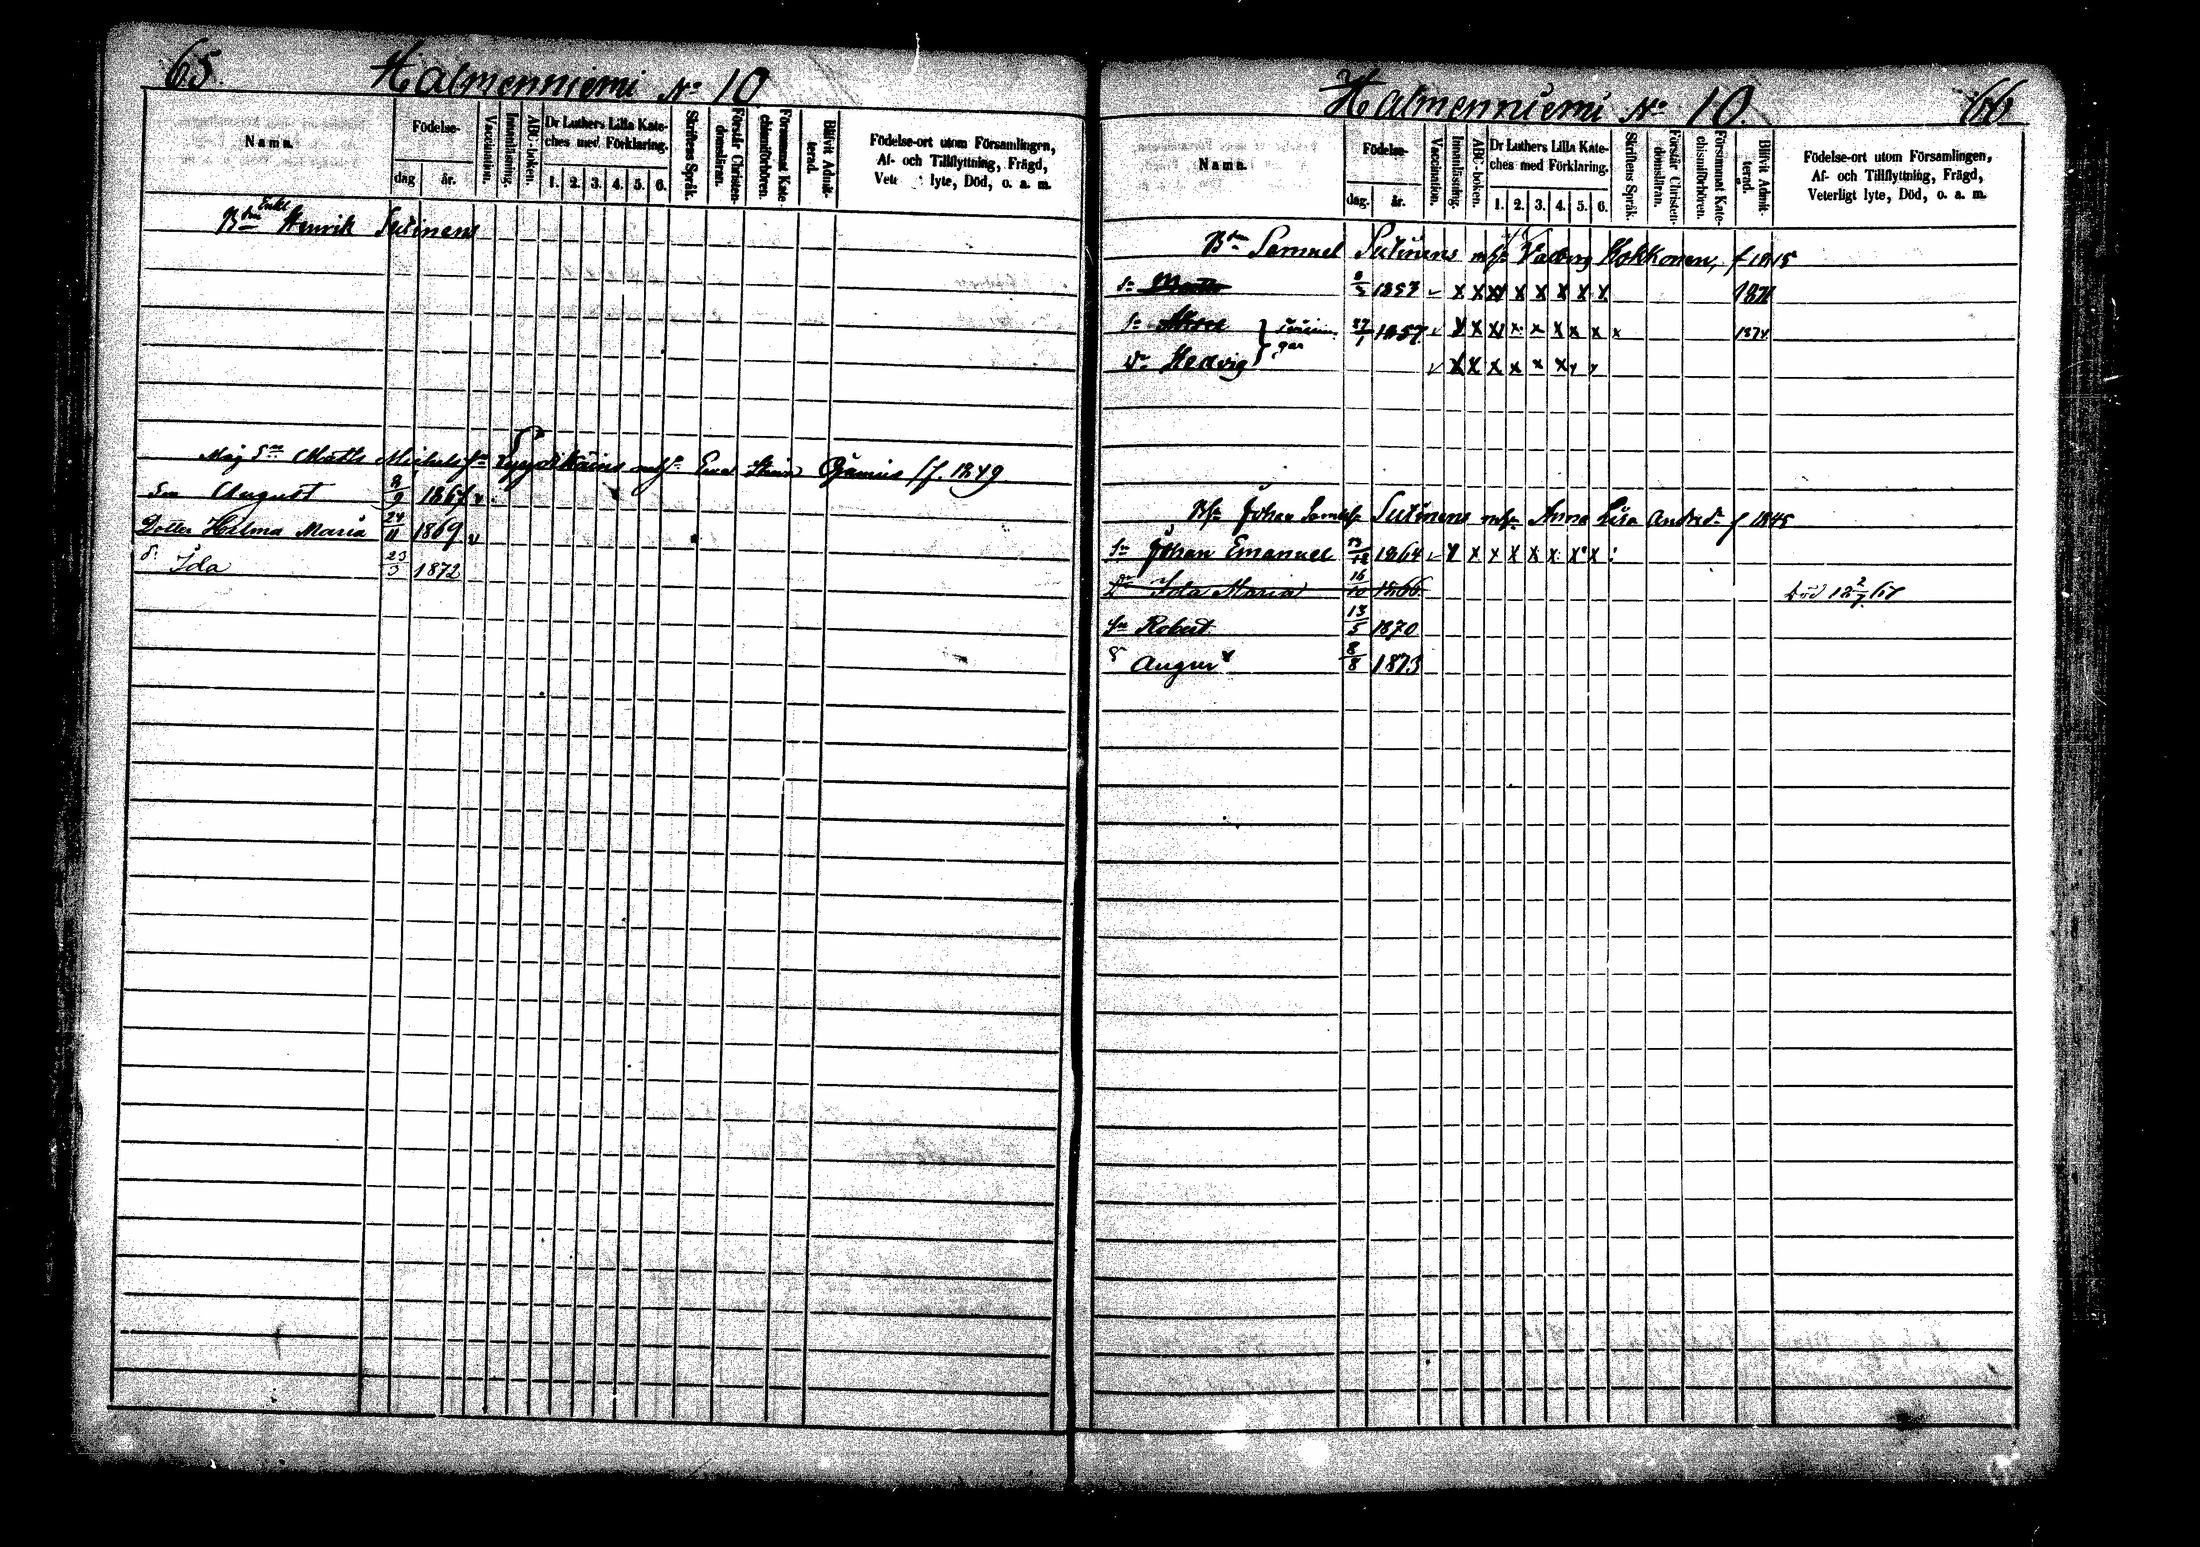 65. Halmenniemi No 10
Namn.
Födelse-
dag
år.
Vaccination.
Innanläsning.
ABC-boken.
Dr Luthers Lilla Kate-
ches med Förklaring.
1. 2. 3. 4. 5. 6.
Skriftens Språk.
Förstår Christen-
domsläran.
Försummat Kate
chismiförhören.
Blifvit Admit-
terad.
Födelse-ort utom Församlingen,
Af- och Tillflyttning, Frägd,
Vete lyte, Död, o. a. m.
Enkl
Bdn Henrik Sutinens
Måg Sn Matts Michelss hust Eva Stina f. 1849
Sn August 8/9 1867 v
Dotter Hilma Maria 24/11 1869 v
d. Ida 23/3 1872
Halmenniemi No 10. 66
Namn.
Födelse-
dag. år.
Vaccination.
Innanläsning.
ABC-boken.
Dr Luthers Lilla Kate-
ches med Förklaring.
1. 2. 3. 4. 5. 6.
Skriftens Språk.
Förstår Christen-
domsläran.
Försummat Kate-
chismiförhören.
Blifvit Admit-
terad.
Födelse-ort utom Församlingen,
Af- och Tillflyttning, Frägd,
Veterligt lyte, Död, o. a. m.
Bdn Samuel Sutinens Valborg Hokkonen, f 1815
Sn 1853 v x x x x x x x x 1871
Sn 27/1 1857 v x x x x x x x x x 1874
Dr Hedvig v x x x x x x x x
Johan Samls Sutinens Anna Lisa Andrsdr f 1845
Sn Johan Emanuel 13/12 1864 v x x x x x x x x
Dr Ida Maria 16/10 1866. Död 18 2/7 67
Sn Robert 13/5 1870
S August 8/8 1873